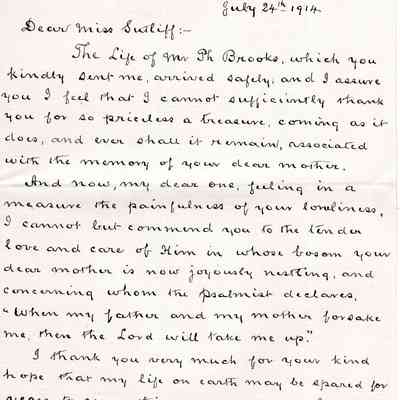 July 24th 1914
Dear Miss Sutliff:-
The Life of Mr Ph Brooks, which you
kindly sent me, arrived safely; and I assure
you I feel that I cannot sufficiently thank
you for so priceless a treasure, coming as it
does, and ever shall it remain, associated
with the memory of your dear mother.
And now, my dear one, feeling in a
measure the painfulness of your loneliness,
I cannot but commend you to the tender
love and care of Him in whose bosom your
dear mother is now joyously nestling, and
concerning whom the psalmist declares,
"When my father and my mother forsake
me, then the Lord will take me up."
I thank you very much for your kind
hope that my life on earth may be spared for